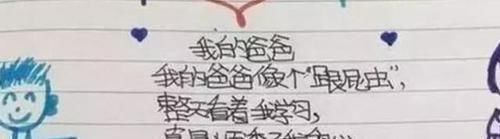 我的爸爸
我的爸爸像个“跟屁虫”,
整天看着我学习,